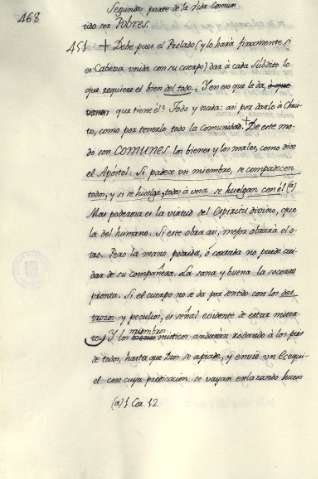 468
Segunda parte de la Vida Comun
sido son Pobres.
451 + Debe pues el Prelado (y lo haria firmemente
Cabeza unida con su cuerpo) dar à cada Subdito lo
que requiere el bien del todo. Y en eso que le da, à que
que tiene él? Todo y nada: asi por darlo à Chris-
to, como por tenerlo todo la Comunidad. + De este mo-
do son COMUNES los bienes y los males, como dice
el Apóstol. Si padece un miembro, se compadecen
todos, y si se huelga, todos à una se huelgan con él (a)
Mas poderosa es la virtud del Espiritu divino, que
la del humano. Si este obra asi, mejor obrará el o-
tro. Pero la mano podrida, ó cortada no puede cui-
dar de su compañera. La sana y buena la socorre
pronta. Si el cuerpo no se da por sentido con los des-
trozos y peculios, es señal evidente de estar muer-
to. Y los miembros misticos andarán
de todos, hasta que Dios se apiade, y envie un Ecequi-
el con cuya predicacion se vayan enlazando hueso
(a) 1 Cor. 12